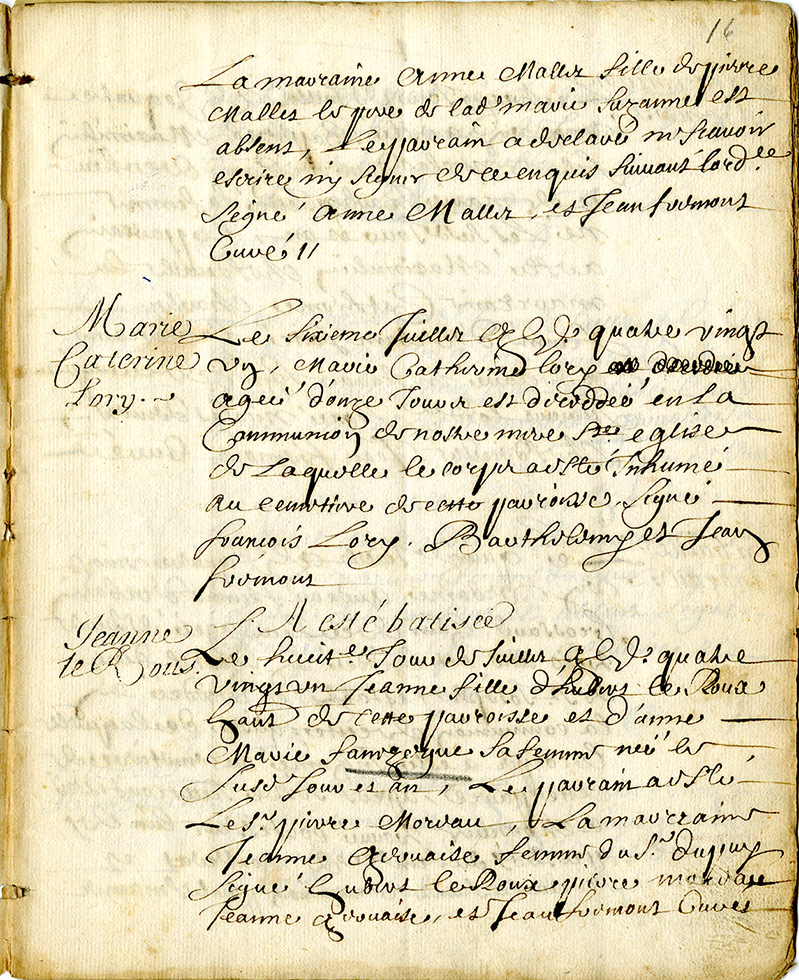 16
La marraine Anne Mallet fille de pierre
Mallet le pere de lad. marie Suzanne est
absent, Le parrain a declaré ne scavoir
escrire ny signer de ce enquis suivant lord.ce
Signé Anne Mallet, et Jean fremont
Curé //
Marie
Caterine
Lory.~
Le sixieme Juillet quatre vingt
un, Marie Catherine Lory
agée d'onze Jours est decedée en La
Communion de nostre mere Ste eglise
de Laquelle le corps a esté Inhumé
au cemetiere de cette parroisse, signé
francois Lory. Barthelemy et Jean
fremont
Jeanne
le Rous.
A esté batisée
Le huict.e Jour de Juillet quatre
vingt un Jeanne fille d'hubert le Roux
habt. de cette parroisse et d'anne
Marie sa femme neé le
Susd. Jour et an, Le parrain a esté
Le Sr. pierre Moreau, La marraine
Jeanne Gervaise femme du Sr. dupuy
Signé hubert le Roux pierre moreau
Jeanne gervaise, et Jean fremont Curés